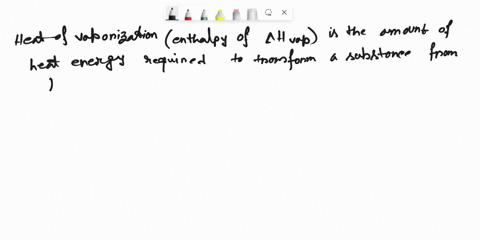 Heat of vaporization (enthalpy of ΔHvap) is the amount of
heat energy required to transform a substance from
)